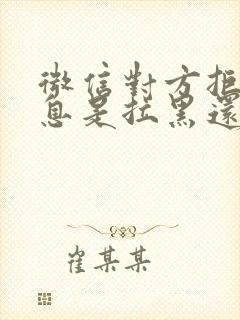 微信對方拒
息是拉黑還
崔某某